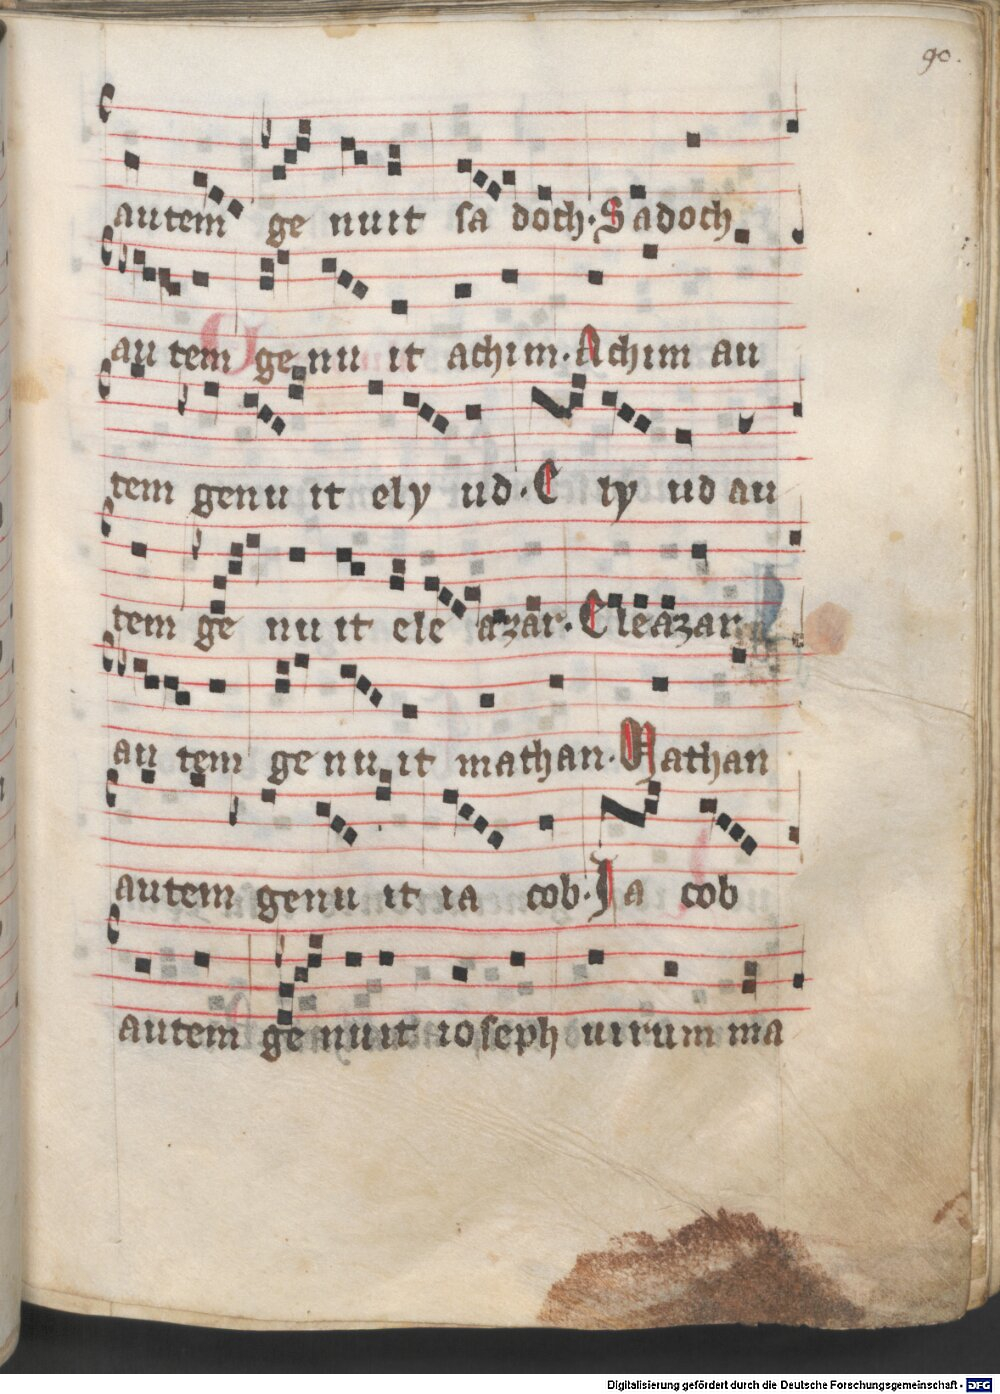 90.
autem ge nuit sa doch. Sadoch
au tem ge nu it achim. Achim au
tem genu it ely ud. Ely ud au
tem ge nu it ele azar. Eleazar
au tem ge nu it mathan. Mathan
autem genu it ia cob. Ia cob
autem ge nuit ioseph uirum ma
Digitalisierung gefördert durch die Deutsche Forschungsgemeinschaft - DFG